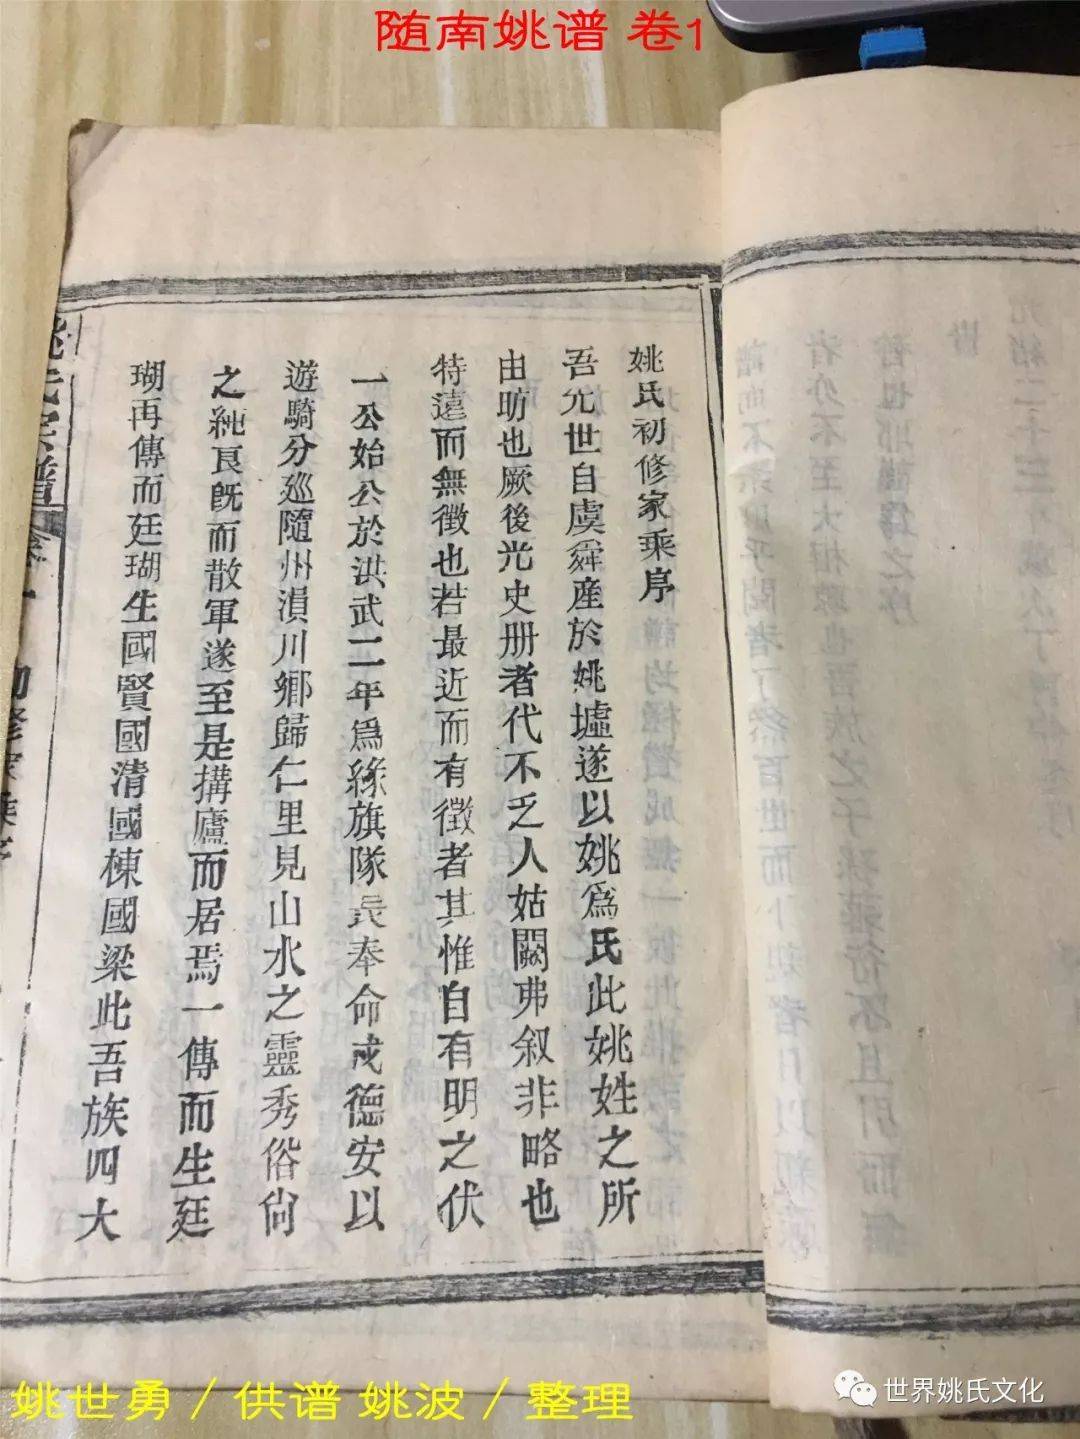 随南姚谱 卷1
姚氏初修家乘序
吾尢世自虞舜産於姚墟遂以姚爲氏此姚姓之所
由昉也厥後光史册者代不乏人姑闕弗叙非略也
特遠而無徵也若最近而有徵者其惟自有明之伏
一公始公於洪武二年爲綠旗隊長奉命戍德安以
遊騎分巡隨州溳川鄉歸仁里見山水之靈秀俗尙
之純良旣而散軍遂至是搆廬而居焉一傳而生廷
瑚再傳而廷瑚生國賢國清國棟國梁此吾族四大
姚氏宗譜
初修家乘序
姚世勇／供谱 姚波／整理
世界姚氏文化